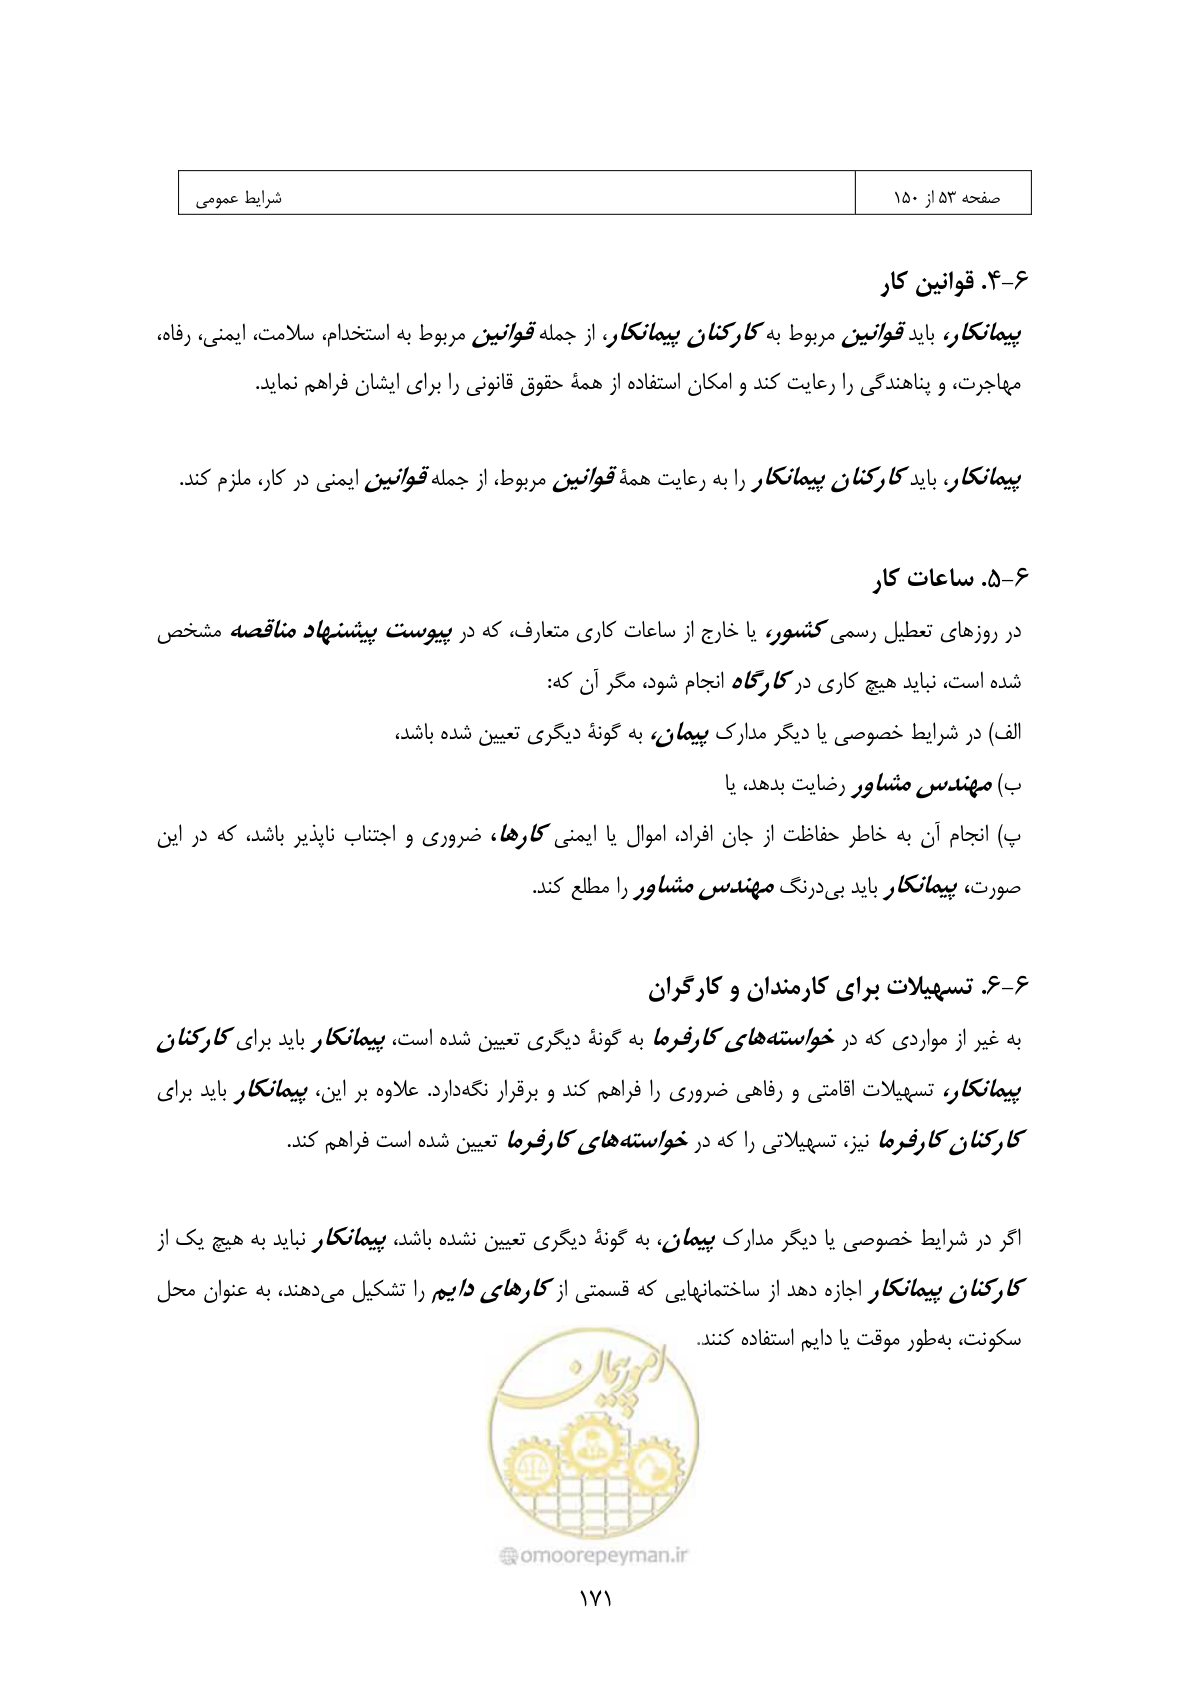 صفحه ۵۳ از ۱۵۰
شرایط عمومی
۶-۴. قوانین کار
پیمانکار، باید قوانین مربوط به کارکنان پیمانکار، از جمله قوانین مربوط به استخدام، سلامت، ایمنی، رفاه،
مهاجرت، و پناهندگی را رعایت کند و امکان استفاده از همهٔ حقوق قانونی را برای ایشان فراهم نماید.
پیمانکار، باید کارکنان پیمانکار را به رعایت همهٔ قوانین مربوط، از جمله قوانین ایمنی در کار، ملزم کند.
۶-۵. ساعات کار
در روزهای تعطیل رسمی کشور، یا خارج از ساعات کاری متعارف، که در پیوست پیشنهاد مناقصه مشخص
شده است، نباید هیچ کاری در کارگاه انجام شود، مگر آن که:
الف) در شرایط خصوصی یا دیگر مدارک پیمان، به گونهٔ دیگری تعیین شده باشد،
ب) مهندس مشاور رضایت بدهد، یا
پ) انجام آن به خاطر حفاظت از جان افراد، اموال یا ایمنی کارها، ضروری و اجتناب ناپذیر باشد، که در این
صورت، پیمانکار باید بی‌درنگ مهندس مشاور را مطلع کند.
۶-۶. تسهیلات برای کارمندان و کارگران
به غیر از مواردی که در خواسته‌های کارفرما به گونهٔ دیگری تعیین شده است، پیمانکار باید برای کارکنان
پیمانکار، تسهیلات اقامتی و رفاهی ضروری را فراهم کند و برقرار نگه‌دارد. علاوه بر این، پیمانکار باید برای
کارکنان کارفرما نیز، تسهیلاتی را که در خواسته‌های کارفرما تعیین شده است فراهم کند.
اگر در شرایط خصوصی یا دیگر مدارک پیمان، به گونهٔ دیگری تعیین نشده باشد، پیمانکار نباید به هیچ یک از
کارکنان پیمانکار اجازه دهد از ساختمانهایی که قسمتی از کارهای دایم را تشکیل می‌دهند، به عنوان محل
سکونت، به‌طور موقت یا دایم استفاده کنند.
امور پیمان
@omoorepeyman.ir
۱۷۱